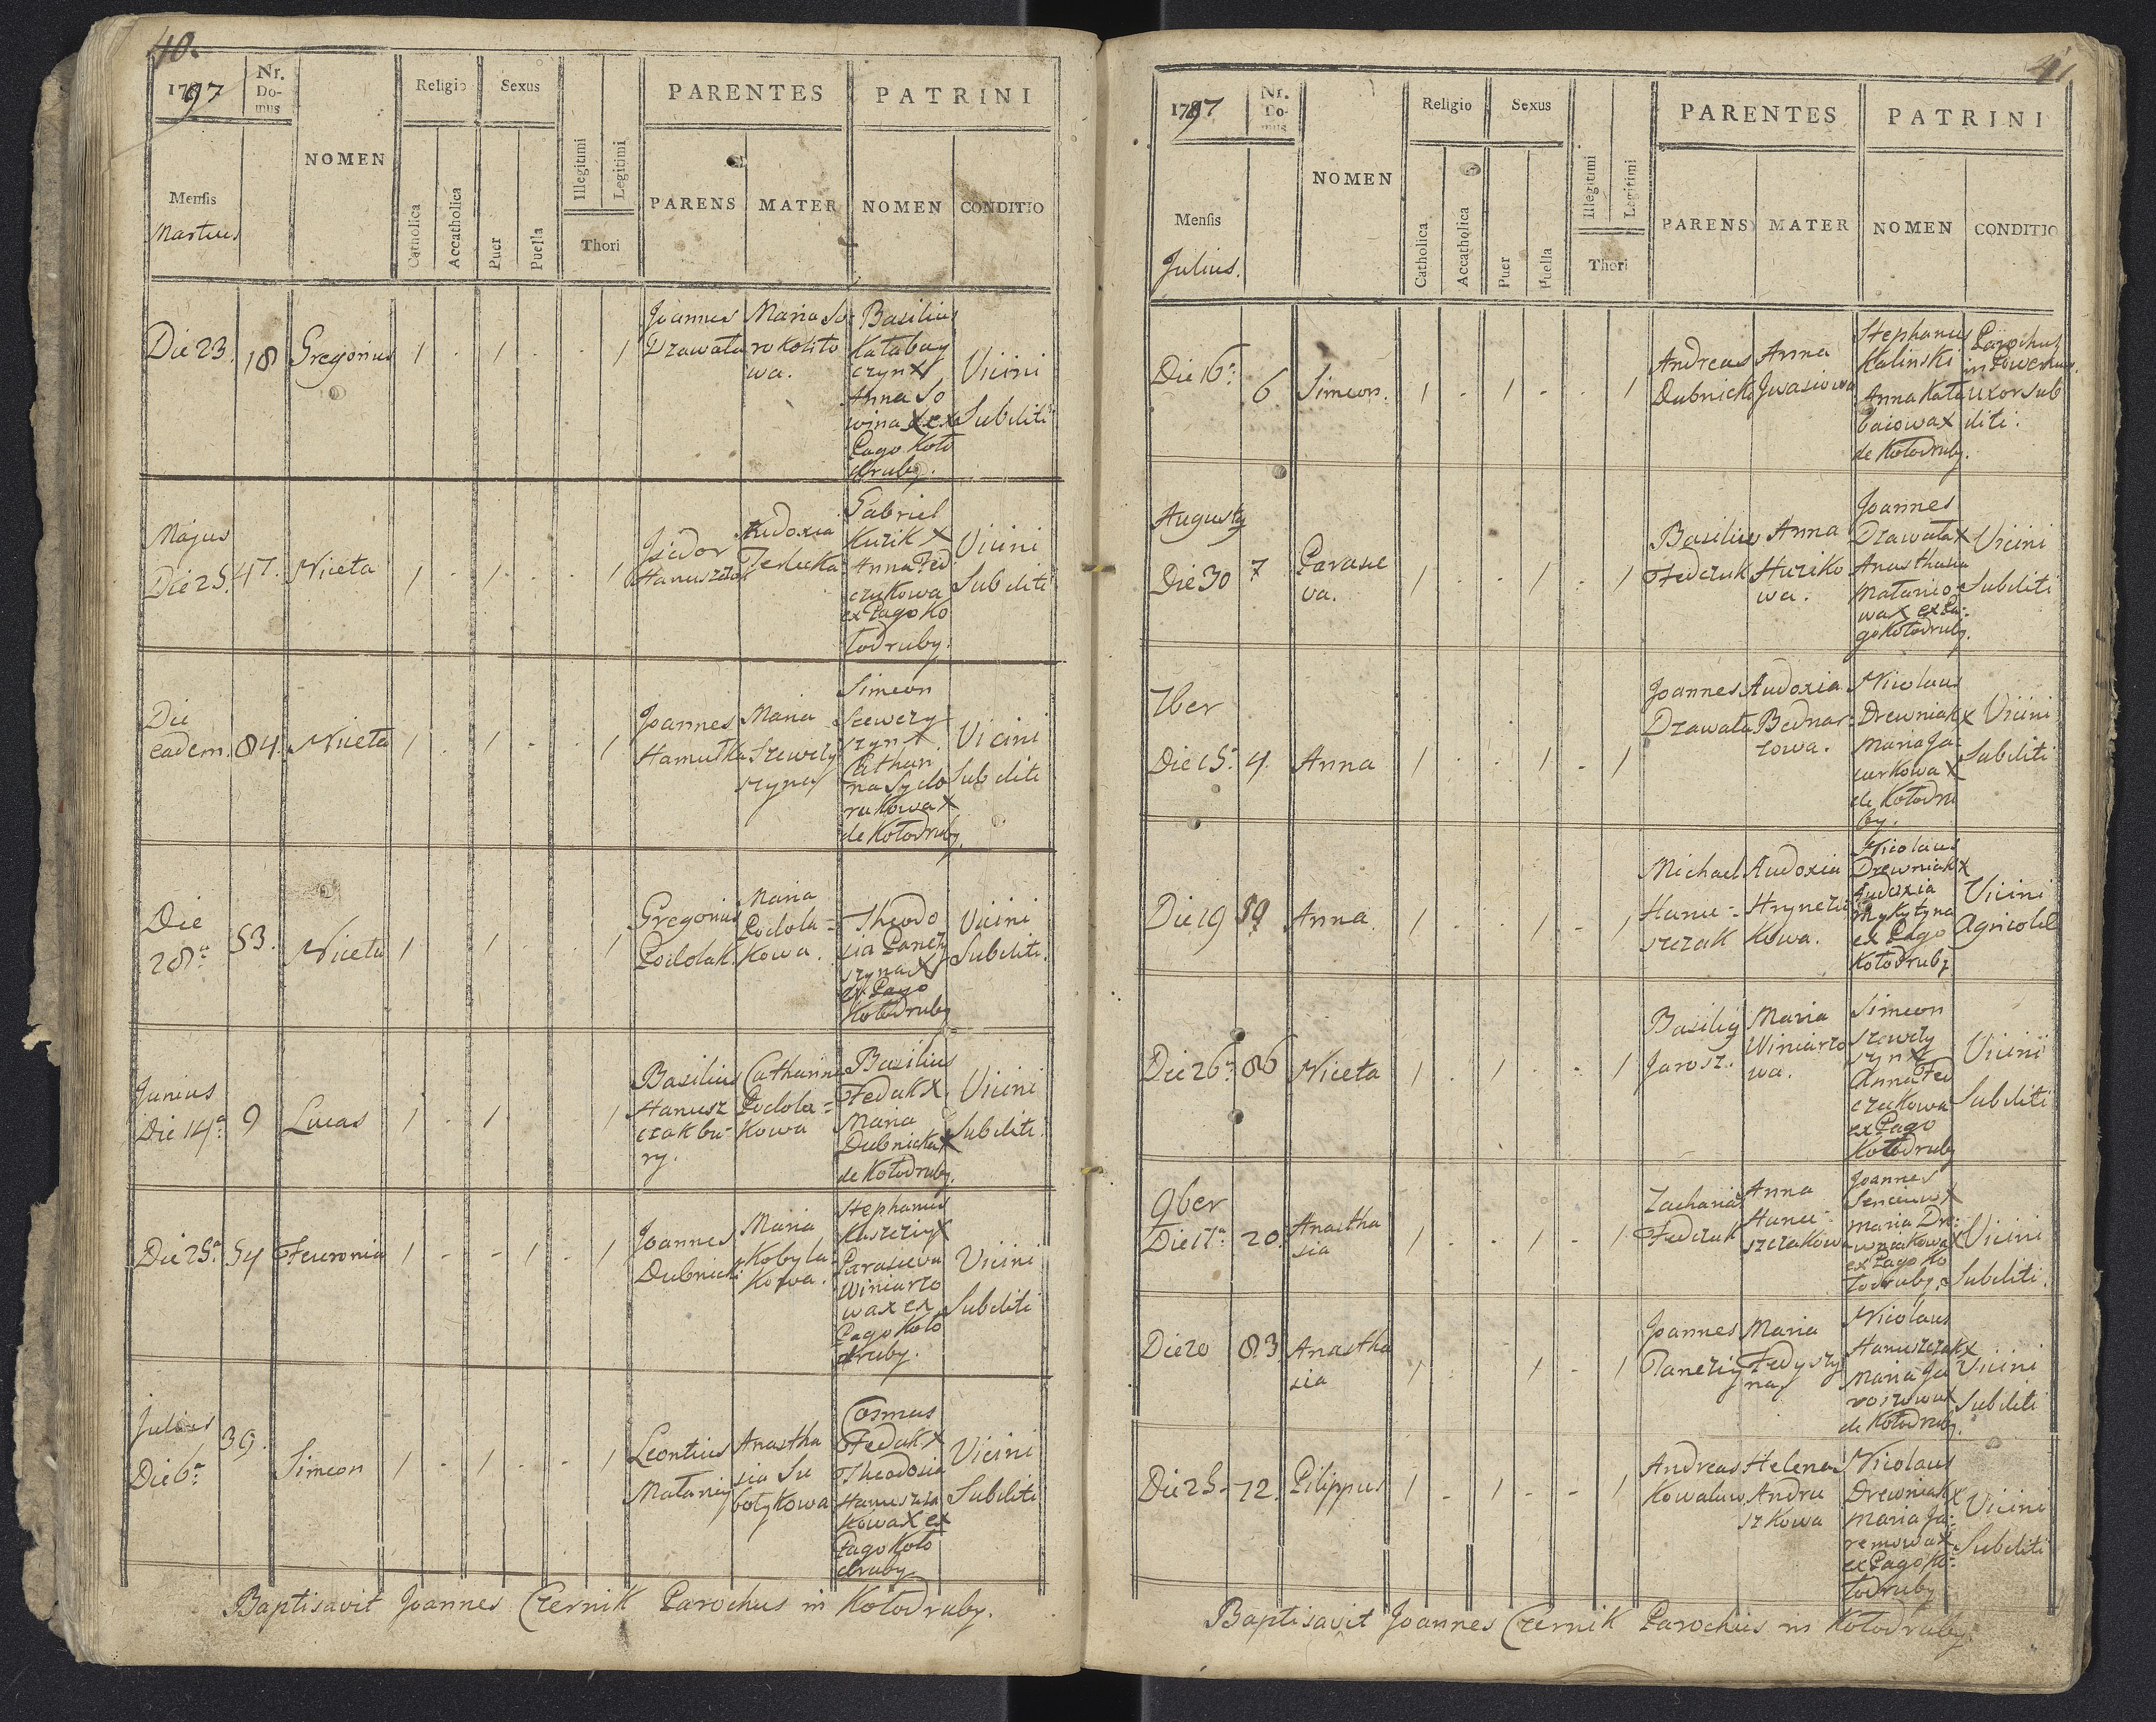 40.
1797
Nr. Domus
NOMEN
Religio
Sexus
Illegitimi
Legitimi
PARENTES
PATRINI
Mensis
Martius
Catholica
Accatholica
Puer
Puella
Thori
PARENS
MATER
NOMEN
CONDITIO
Die 23. 18 Gregorius 1 . 1 . . 1
Joannes
Dzawała
Maria So:
rokolito
wa.
Basilius
Katabay
czyn X
Anna So
wina X ex
Pago Koło
druby.
Vicini
Subditi
Majus
Die 25. 47. Niceta 1 . 1 . . 1
Isidor
Hanuszczak
Eudoxia
Terlecka
Gabriel
Kuzik X
Anna Fed
czukowa
ex Pago Ko
łodruby.
Vicini
Subditi
Die
eadem. 84. Niceta 1 . 1 - . 1
Joannes
Hamułka
Maria
Szewczy
szyna
Simeon
Szewczy
szyn X
Cathari
na Sydo
rukowa X
de Kołodruby.
Vicini
Subditi
Die
28a 53. Niceta 1 . 1 . . 1
Gregorius
Podolak.
Maria
Podola=
kowa.
Theodo
sia Panczy
szyna X
ex Pago
Kołodruby
Vicini
Subditi.
Junius
Die 14a 9 Lucas 1 . 1 . . 1
Basilius
Hanusz
czak bu=
ry.
Catharina
Podola=
kowa
Basilius
Fedak X
Maria
Dubnicka X
de Kołodruby.
Vicini
Subditi.
Die 25a 54 Feuronia 1 - - 1 - 1
Joannes
Dubnicki
Maria
Kobyla
kowa.
Stephanus
Parasceva
Winiarzo
wa X ex
Pago Koło
druby.
Vicini
Subditi
Julius
Die 6a 39. Simeon 1 - 1 - - 1
Leontius
Małaniy
Anastha
sia Su
botykowa
Cosmus
Fedak X
Theodosia
Hanuszcza
kowa X ex
Pago Koło
druby.
Vicini
Subditi
Baptisavit Joannes Czernik Parochus in Kołodruby.
41
1797
Nr. Domus
NOMEN
Religio
Sexus
Illegitimi
Legitimi
PARENTES
PATRINI
Mensis
Julius.
Catholica
Accatholica
Puer
Puella
Thori
PARENS
MATER
NOMEN
CONDITIO
Die 16a 6 Simeon. 1 - 1 - . 1
Andreas
Dubnicki
Anna
Iwasiowa
Stephanus
Kalinski
Anna Kata
baiowa X
de Kołodruby.
Parochus
in Powerchow.
uxor sub
diti.
Augusty
Die 30 7 Parasce
va. 1 . . 1 - 1
Basilius
Fedczuk
Anna
Huziko
wa.
Joannes
Dzawała X
Anasthasia
Małanio=
wa X ex Pa=
go Kołodruby.
Vicini
Subditi
7ber
Die 15a 4 Anna 1 . . 1 - 1
Joannes
Dzawała
Audoxia
Bednar
zowa.
Nicolaus
Drewniak X
Maria Ja=
curkowa X
de Kołodru
by.
Vicini
Subditi
Die 19 59 Anna. 1 . . 1 - 1
Michael
Hanu=
szczak
Audoxia
Hrynczu
kowa.
Nicolaus
Drewniak X
Audoxia
Mykytyna
ex Pago
Kołodruby
Vicini
Agricolae
Die 26a 86 Niceta 1 . 1 . - 1
Basiliy
Jarosz.
Maria
Winiarzo
wa.
Simeon
Szewczy
szyn X
Anna Fed
czukowa
ex Pago
Kołodruby
Vicini
Subditi
9ber
Die 17a 20. Anastha
sia 1 . . 1 - 1
Zacharias
Fedczuk
Anna
Hanu=
szczakowa
Joannes
Senciuw X
Maria Dre:
wniakowa X
ex Pago Ko
łodruby.
Vicini
Subditi.
Die 20 83 Anastha
sia 1 . . 1 - 1
Joannes
Pancziy
Maria
Fedyszy
na
Nicolaus
Hanuszczak X
Maria Ja
roszowa X
de Kołodruby.
Vicini
Subditi
Die 25a 72. Pilippus 1 - 1 - - 1
Andreas
Kowaluw
Helena
Andru
szkowa
Nicolaus
Drewniak X
Maria Ja:
remowa X
ex Pago Ko=
łodruby
Vicini
Subditi
Baptisavit Joannes Czernik Parochus in Kołodruby.